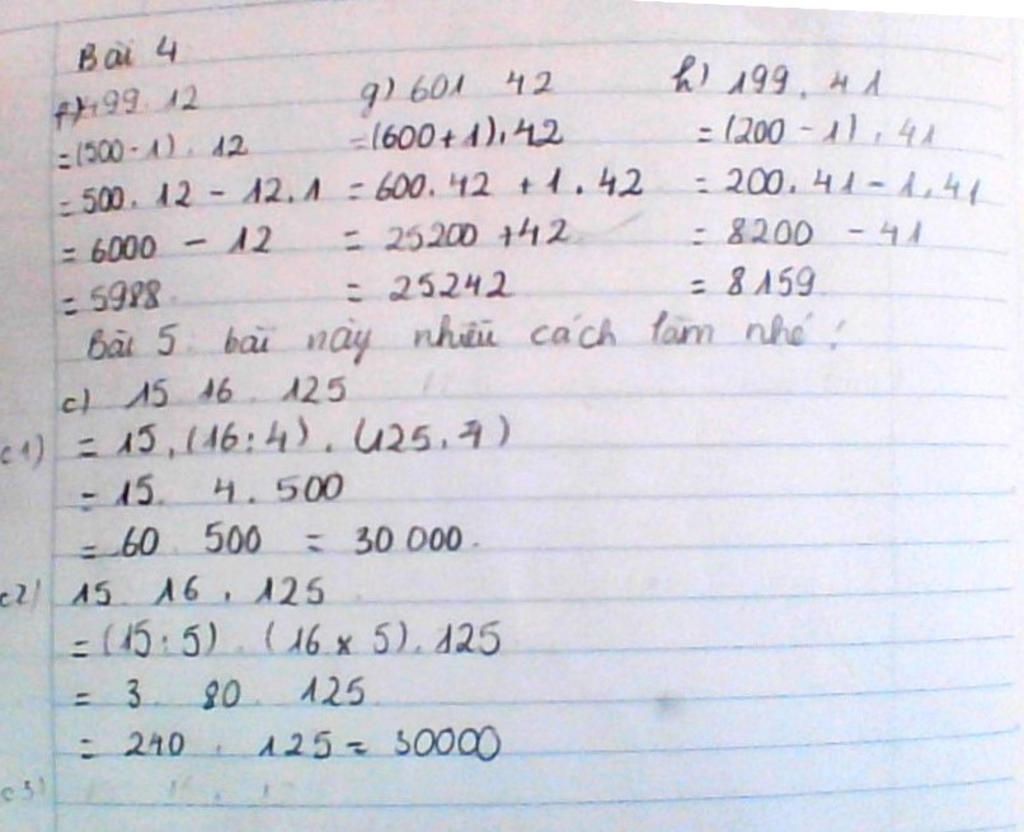 Bài 4
f) 499. 12 g) 601 42 h) 199. 41
=(500-1). 12 =(600+1).42 = (200-1). 41
=500. 12 - 12.1 = 600. 42 + 1. 42 = 200. 41 - 1. 41
= 6000 - 12 = 25200 +42 = 8200 - 41
= 5988 = 25242 = 8159
Bài 5 bài này nhiều cách làm nhé!
c) 15 16. 125
c1) = 15. (16:4). (125.4)
= 15. 4. 500
= 60 500 = 30 000.
c2) 15 16. 125
= (15:5). (16 x 5). 125
= 3 80. 125
= 240. 125 = 30000
c3)